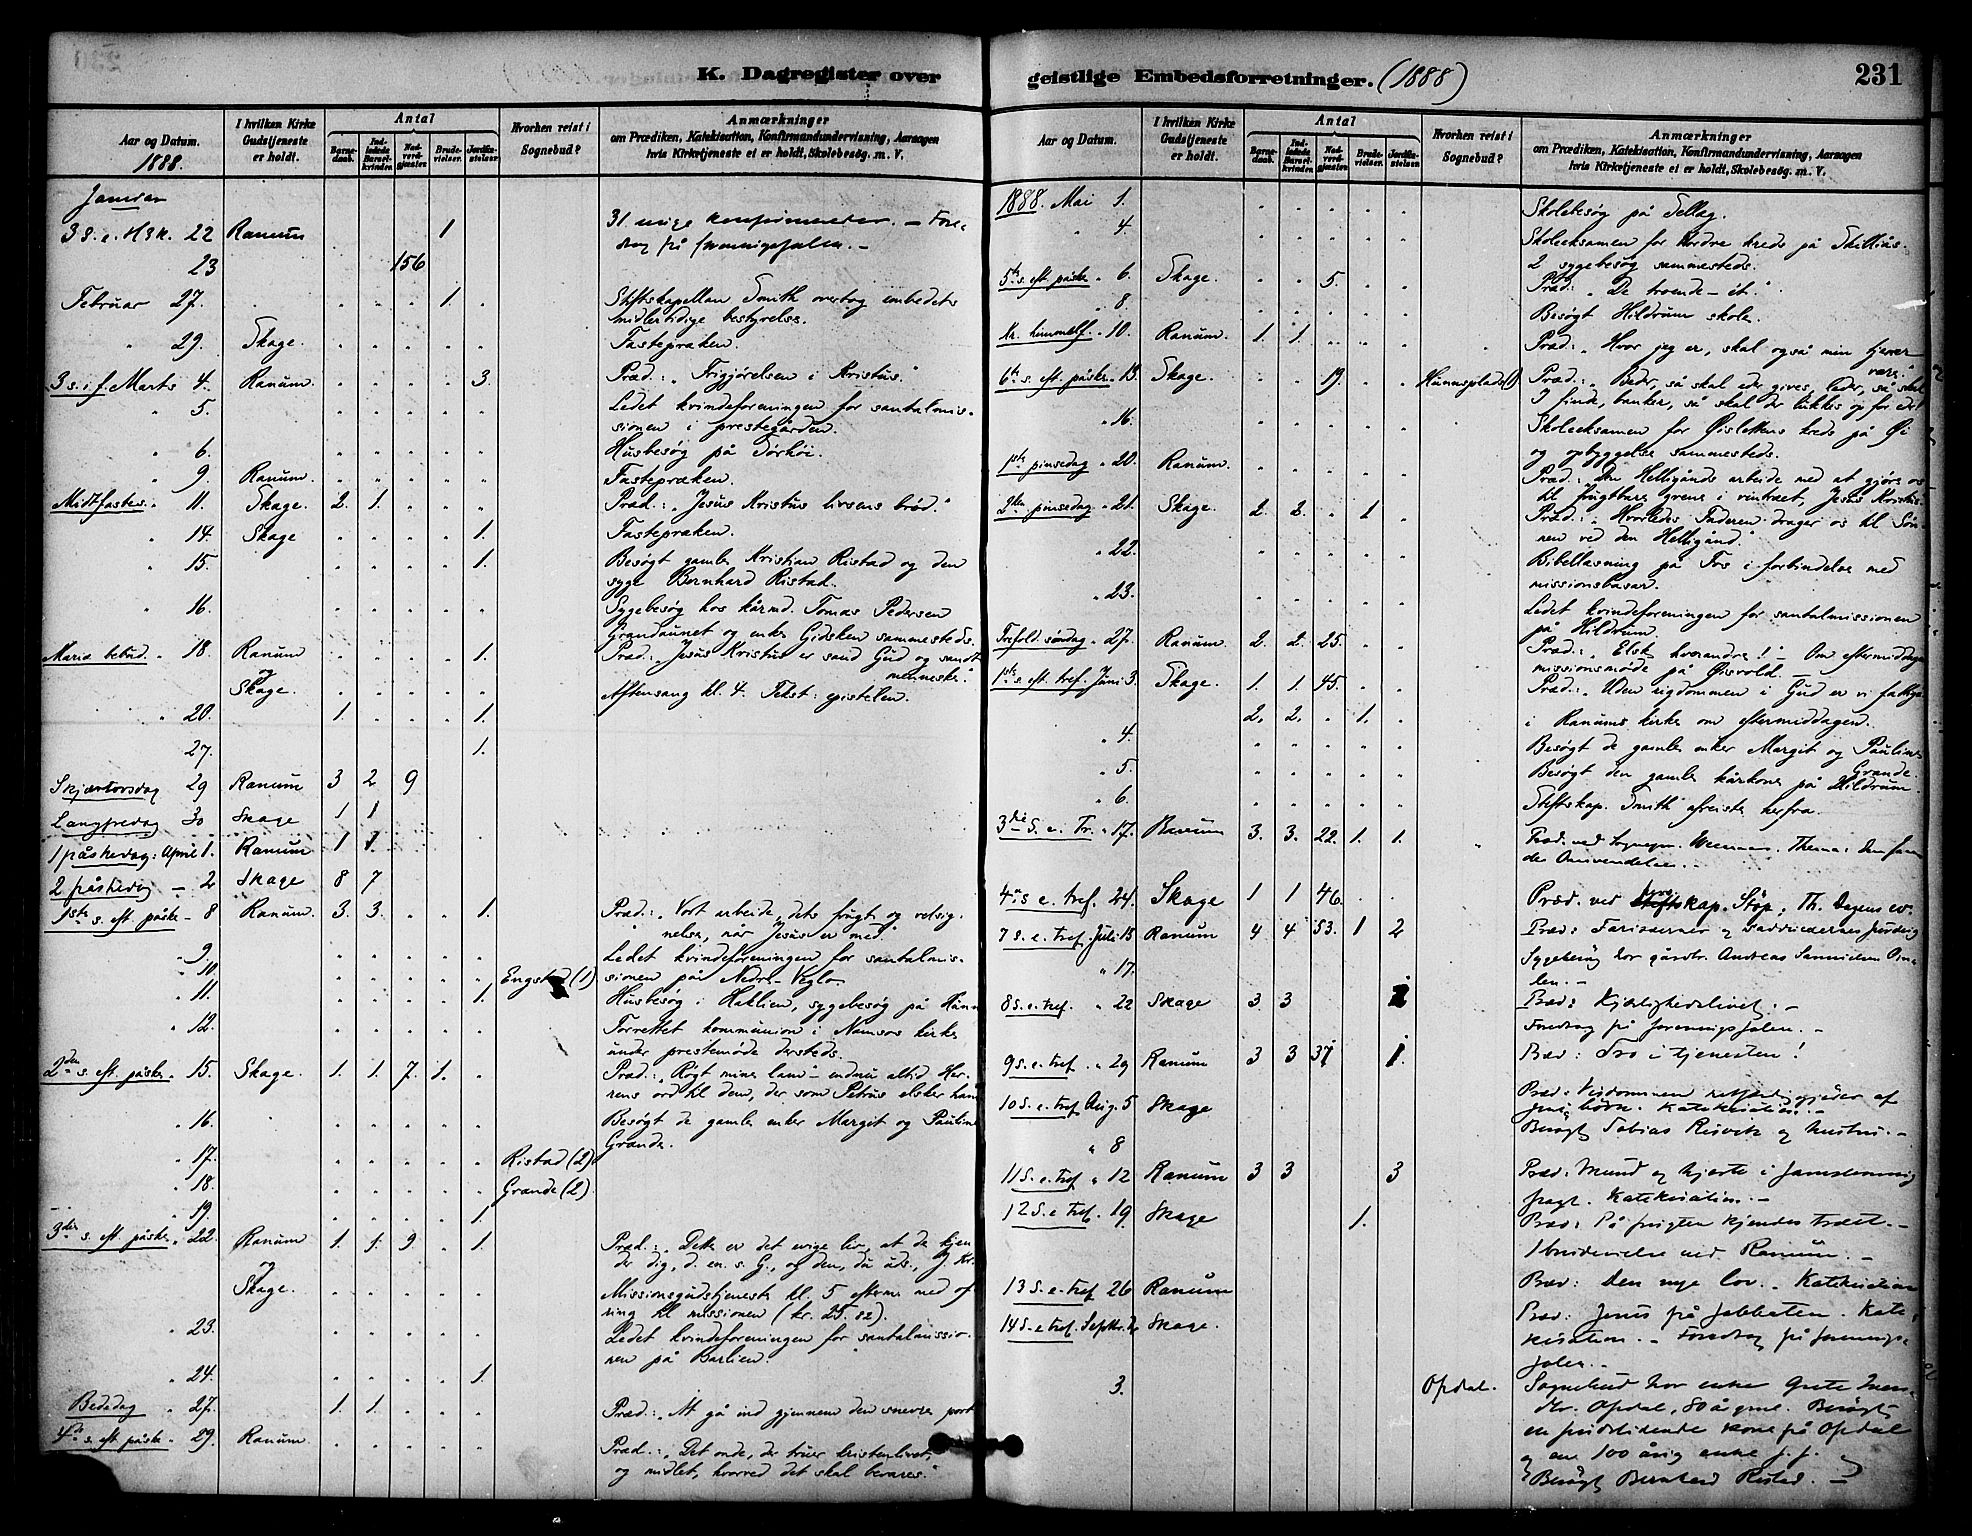 K. Dagregister over geistlige Embedsforretninger. (1888)
231
Aar og Datum.
1888.
I hvilken Kirke Gudstjeneste er holdt.
Antal
Barnedaab.
Indledede Barselkvinder.
Nadverdgjæster.
Brudevielser.
Jordfæstelser.
Hvorhen reist i Sognebud?
Anmærkninger
om Prædiken, Katekisation, Konfirmandundervisning, Aarsagen
hvis Kirketjeneste ei er holdt, Skolebesøg. m. V.
Januar
3 S. e. H3K. 22 Ranum 1 31 unge konfirmerter. — Fore-
drag på foreningssalen. —
23 156
Februar 27. 1. Stiftskapellan Smith overtog embedets
midlertidige bestyrelse.
" 29. Skage. Fastepræken.
3 s. i f. Marts 4. Ranum. 3. Præd.: „Frigjørelsen i Kristus."
" 5. Ledet kvindeforeningen for santalmis-
sionen i prestegården.
" 6. Husbesøg på Tørhøi.
" 9 Ranum. Fastepræken.
Midtfastes. " 11. Skage. 2. 1. Præd.: „Jesus Kristus livsens brød."
" 14. Skage 1. Fastepræken.
" 15. 1. Besøgt gamle Kristian Ristad og den
syge Bernhard Ristad.
" 16. Sygebesøg hos kårmd. Tomas Pedersen
Grandaunet og enke Gidsken sammesteds.
Mariæ bebud. " 18. Ranum 1. Præd.: „Jesus Kristus er sand Gud og sandt
menneske."
og
Skage. Aftensang kl. 4. Tekst: epistelen.
" 20. 1. 1.
27. 1.
Skjærtorsdag 29 Ranum 3 2 9
Langfredag 30 Skage 1 1
1 påskedag: April 1. Ranum 1 1.
2 påskedag — 2 Skage 8 7
1ste s. eft. påske " 8 Ranum. 3. 3. 1. Præd.: „Vort arbeide, dets frugt og velsig-
nelse, når Jesus er med."
" 9. Ledet kvindeforeningen for santalmis-
" 10. Engstad (1) sionen på Nedre-Veglo.
" 11. 1. Husbesøg i Haklien, sygebesøg på Hunn
" 12. Forrettet kommunion i Namsos kirke
under prestemøde dersteds.
2den s. eft. påske " 15. Skage. 1. 1. 7. 1. Præd.: „Røgt mine lam" — endnu altid Her-
rens ord til dem, der som Petrus elsker ham
" 16. Besøgt de gamle enker Margit og Pauline
Grande.
" 17. Ristad (2)
" 18. Grande (2)
" 19. 1.
3die s. eft. påske " 22. Ranum 1. 1. 9. 1. Præd.: „Dette er det evige liv, at de kjen-
der dig, d. en. s. G., og den, du uds., J. Kr.
og
Skage. Missionsgudstjeneste kl. 5 efterm. med of-
ring til missionen (kr. 25.82).
" 23. Ledet kvindeforeningen for santalmissio-
nen på Barlien.
" 24. 1.
Bededag " 27. 1. 1. Præd.: „At gå ind gjennem den snevre port
4de s. eft. påske " 29. Ranum. Præd.: „Det onde, der truer kristenlivet,
og midlet, hvorved det skal bevares."
Aar og Datum.
I hvilken Kirke Gudstjeneste er holdt.
Antal
Barnedaab.
Indledede Barselkvinder.
Nadverdgjæster.
Brudevielser.
Jordfæstelser.
Hvorhen reist i Sognebud?
Anmærkninger
om Prædiken, Katekisation, Konfirmandundervisning, Aarsagen
hvis Kirketjeneste ei er holdt, Skolebesøg. m. V.
1888. Mai 1. Skolebesøg på Sellæg.
" 4. Skoleeksamen for Nordre kreds på Skillås.
2 sygebesøg sammesteds.
5te s. eft. påske " 6. Skage. 5. Præd.: „De troende — ét."
" 8. Besøgt Hildrum skole.
Kr. himmelf. " 10. Ranum. 1. 1. Præd.: „Hvor jeg er, skal også min tjener
være."
6te s. eft. påske " 13. Skage. 19. Hunnsplads (1) Præd.: „Beder, så skal eder gives, leder, så skal
I finde, banker, så skal der lukkes op for eder!
" 16. Skoleeksamen for Øislettens kreds på Øi
og opbyggelse sammesteds.
1ste pinsedag " 20. Ranum. Præd.: „Den Helligånds arbeide med at gjøre os
til frugtbare grene i vintræet, Jesus Kristus.
2den pinsedag " 21. Skage. 2. 2. 1. Præd.: „Hvorledes Faderen drager os til Søn-
nen ved den Helligånd."
" 22. Bibellæsning på Fos i forbindelse med
missionsbasar.
" 23. Ledet kvindeforeningen for santalmissionen
på Hildrum.
Trefold. søndag " 27. Ranum. 2. 2. 25. Præd.: „Elsk hverandre!" — Om eftermiddagen
missionsmøde på Øisvold.
1ste s. eft. tref. Juni 3. Skage. 1. 1. 45. Præd.: „Uden rigdommen i Gud er vi fattige
2. 2. 1. i Ranums kirke om eftermiddagen.
" 4. Besøgt de gamle enker Margit og Pauline
Grande.
" 5. Besøgt den gamle kårkone på Hildrum.
" 6. Stiftskap. Smith afreiste herfra.
3die S. e. Tr. " 17. Ranum 3. 3. 22. 1. 1. Præd. ved Sognepr. Thema: Den sande
Omvendelse.
4de s e. tref. 24. Skage 1 1 46. Præd. ved kap. Støp; Th. Dagens ev.
7 S. e. tref. Juli 15 Ranum 4 4 53. 1 2 Præd: Farisæernes og Sadducæernes surdeig
" 17. Sygebesøg hos gårdbr. Andreas Samuelsen
8 S. e. tref. " 22 Skage 3 3 Præd: Kjærlighedslivet. —
Foredrag på foreningssalen. —
9 S. e. tref. " 29 Ranum 3 3 37 1. Præd: Tro i tjenesten!
10 S. e. tref. Aug. 5 Skage Præd: Visdommen retfærdiggjøres af
sine børn. Katekisation. —
" 8 Besøgt Tobias Risvik og hustru. —
11 S. e. tref " 12 Ranum 3 3 3 Præd: Mund og hjerte i samstemmig
pagt. Katekisation. —
12 S. e tref. " 19 Skage 1. Præd: På frugten kjendes træet. —
1 brudevielse ved Ranum. —
13 S. e. tref 26 Ranum Præd: Den nye lov. — Katekisation
14 S. e. tref. Septbr. 2. Skage. Præd: Jesus på sabbaten. Kate-
kisation. — Foredrag på forenings-
salen. —
3. Opdal. Sognebud hos enke Grete
Opdal, 80 år gml. Besøgt
en sindslidende kone på Opdal
og en 100 årig enke
Besøgt Bernhard Ristad. —